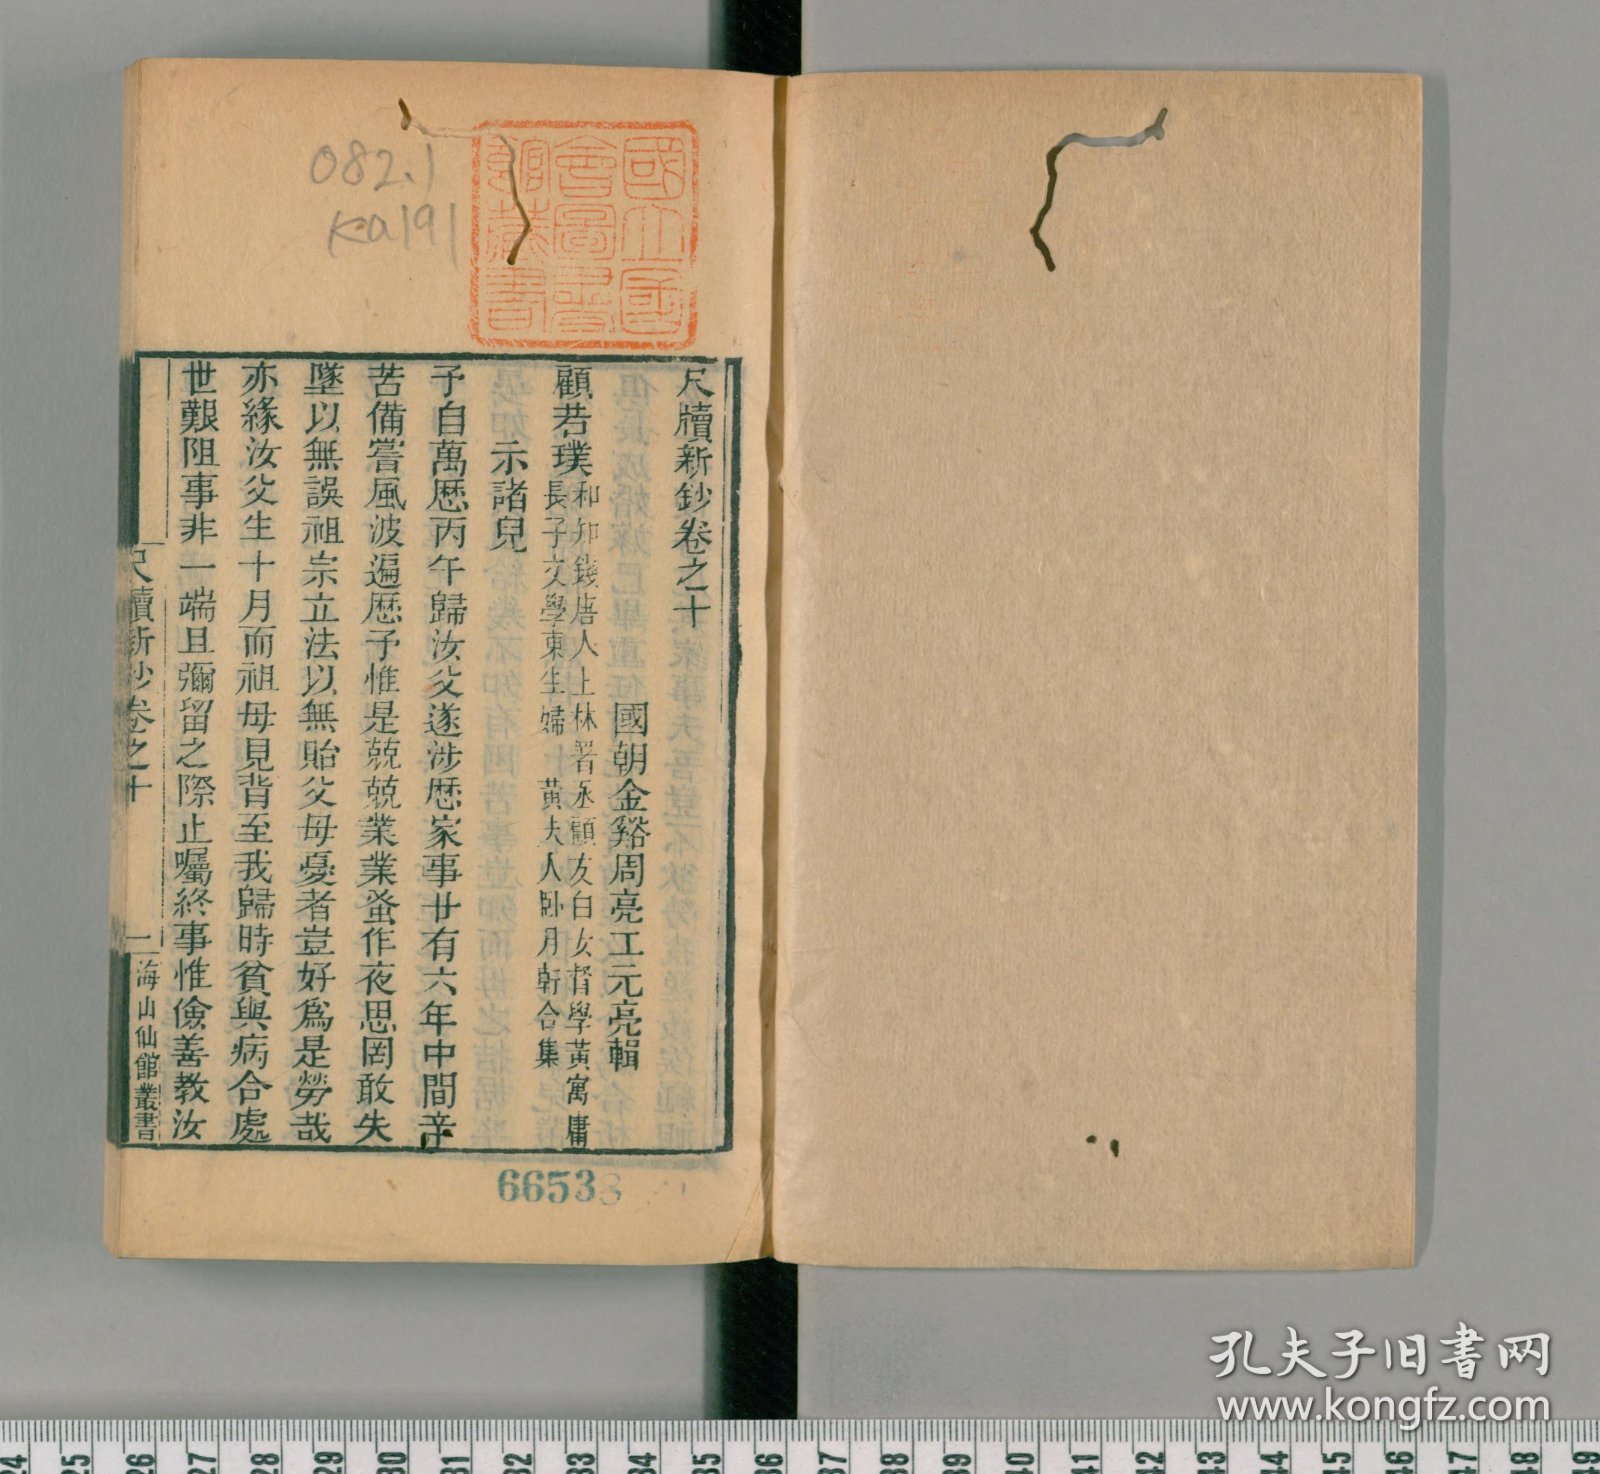 尺牘新鈔卷之十
國朝金谿周亮工元亮輯
顧若璞
和知錢唐人上林署丞顧友白女督學黃寓庸
長子文學東生婦 黃夫人臥月軒合集
示諸兒
予自萬歷丙午歸汝父遂涉歷家事廿有六年中間辛
苦備嘗風波遍歷予惟是兢兢業業蚤作夜思罔敢失
墜以無誤祖宗立法以無貽父母憂者豈好為是勞哉
亦緣汝父生十月而祖母見背至我歸時貧與病合處
世艱阻事非一端且彌留之際止囑終事惟儉善教汝
尺牘新鈔卷之十
一
海山仙館叢書
國立國會圖書館藏書
082.1
Ka191
66538
孔夫子旧书网
www.kongfz.com
24 25 26 27 28 29 30 31 32 33 34 35 36 37 38 39 40 41 42 43 44 45 46 47 48 49